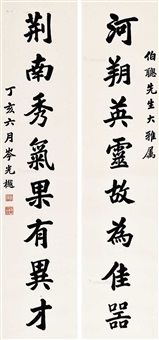 伯聰先生大雅属
河朔英靈故為佳器
荆南秀氣果有異才
丁亥六月岑光樾